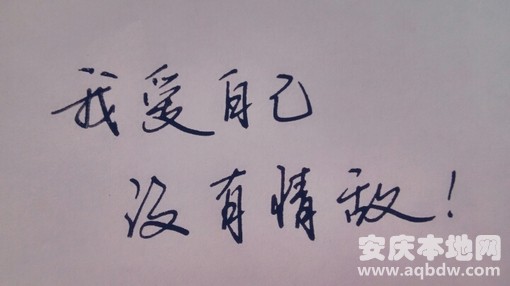 我爱自己
没有情敌！
安庆本地网
www.aqbdw.com